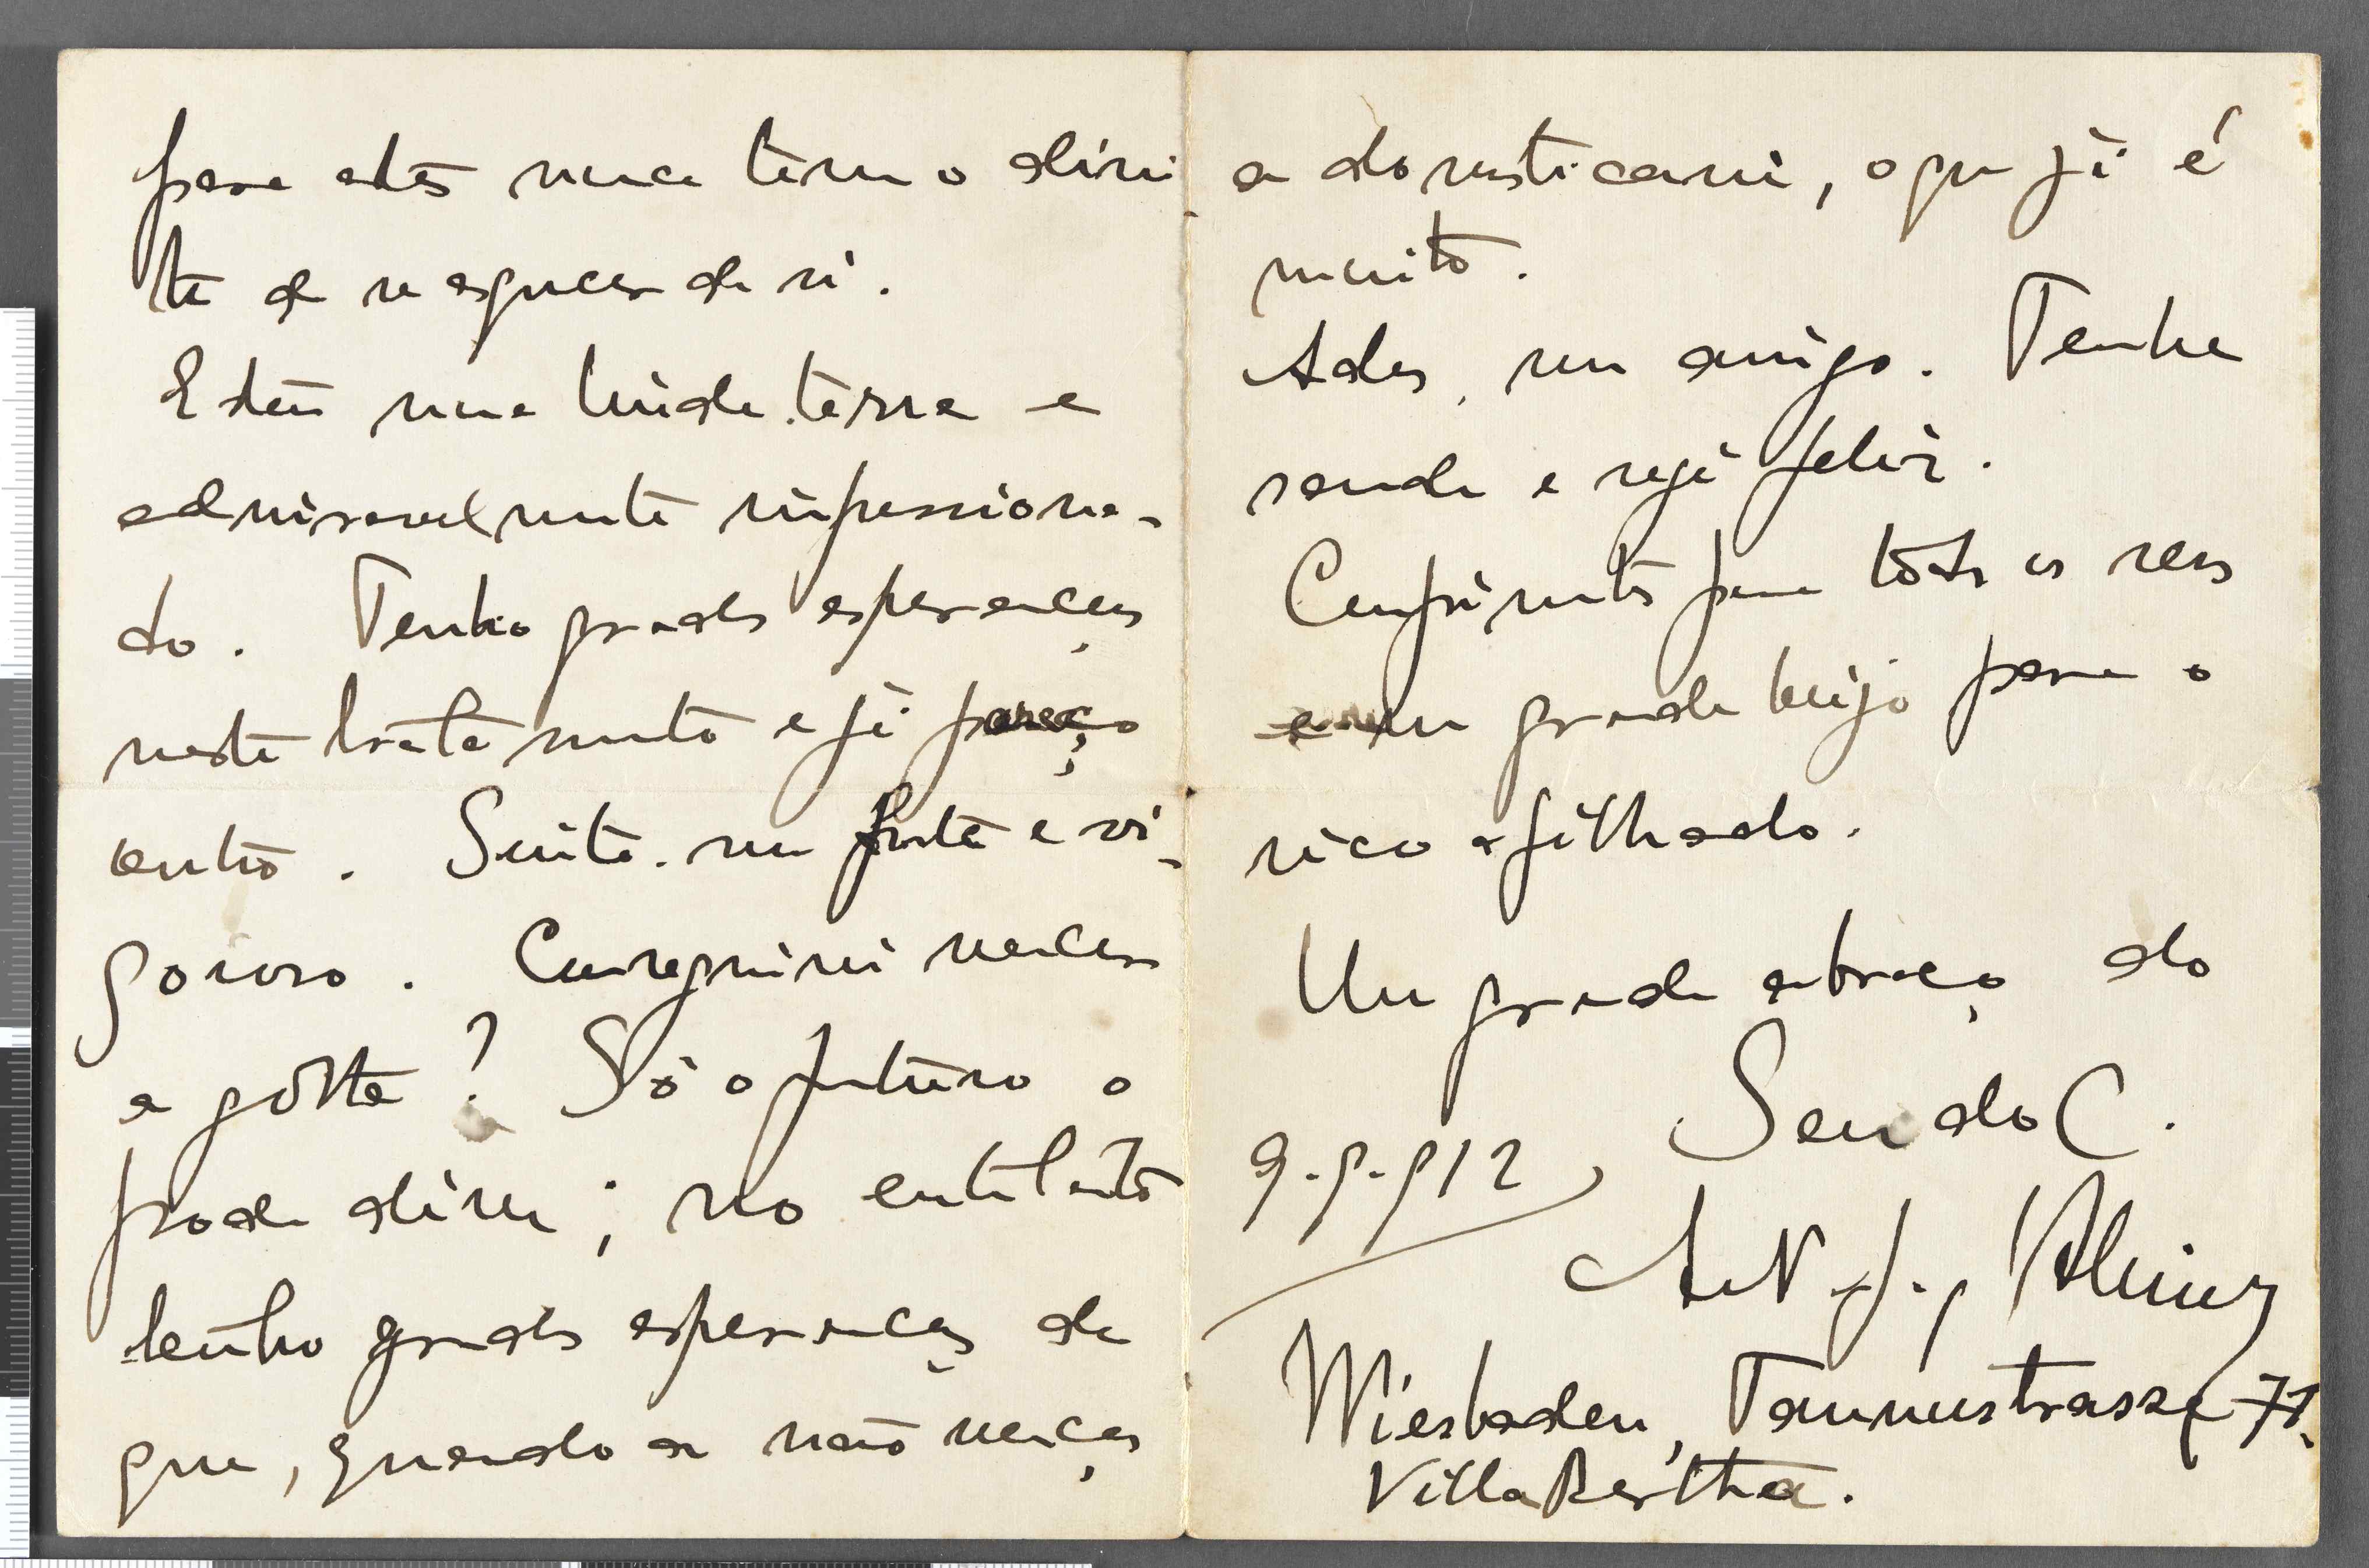 para estes nunca tem o direi-
to de se esquecer de si.
Estou numa linda terra e
admiravelmente impressiona-
do. Tenho grandes esperanças
neste tratamento e já pareço
outro. Sinto-me forte e vi-
goroso. Conseguirei vencer
a gôtta? Só o futuro o
pode dizer; no entretanto
tenho grandes esperanças de
que, quando a não vença,
a domesticarei, o que já é
muito.
Adeus, meu amigo. Tenha
saude e seja feliz.
Cumprimentos para todos os seus
e um grande beijo para o
nico afilhado.
Um grande abraço do
Seu do C.
9-9-912
Wiesbaden, Taunusstrasse 71,
Villa Bertha.